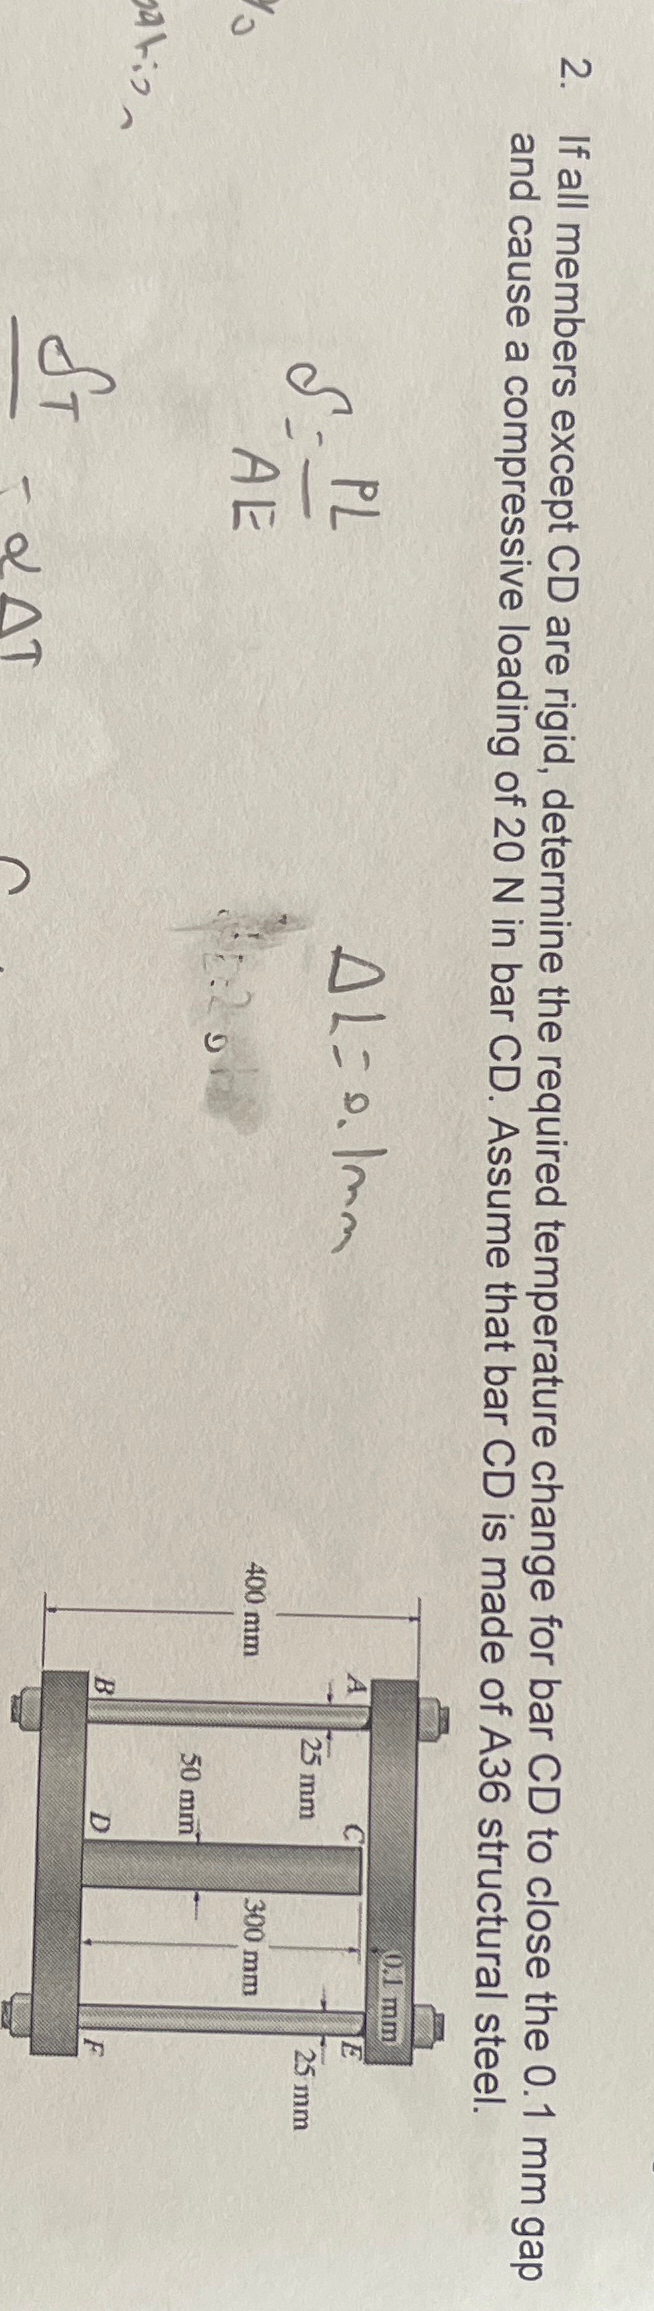 2. If all members except CD are rigid, determine the required temperature change for bar CD to close the 0.1 mm gap
and cause a compressive loading of 20 N in bar CD. Assume that bar CD is made of A36 structural steel.
ΔL = 0.1mm
δ = PL
AE
δT = αΔT
0.1 mm
A
C
E
25 mm
25 mm
400 mm
300 mm
50 mm
B
D
F